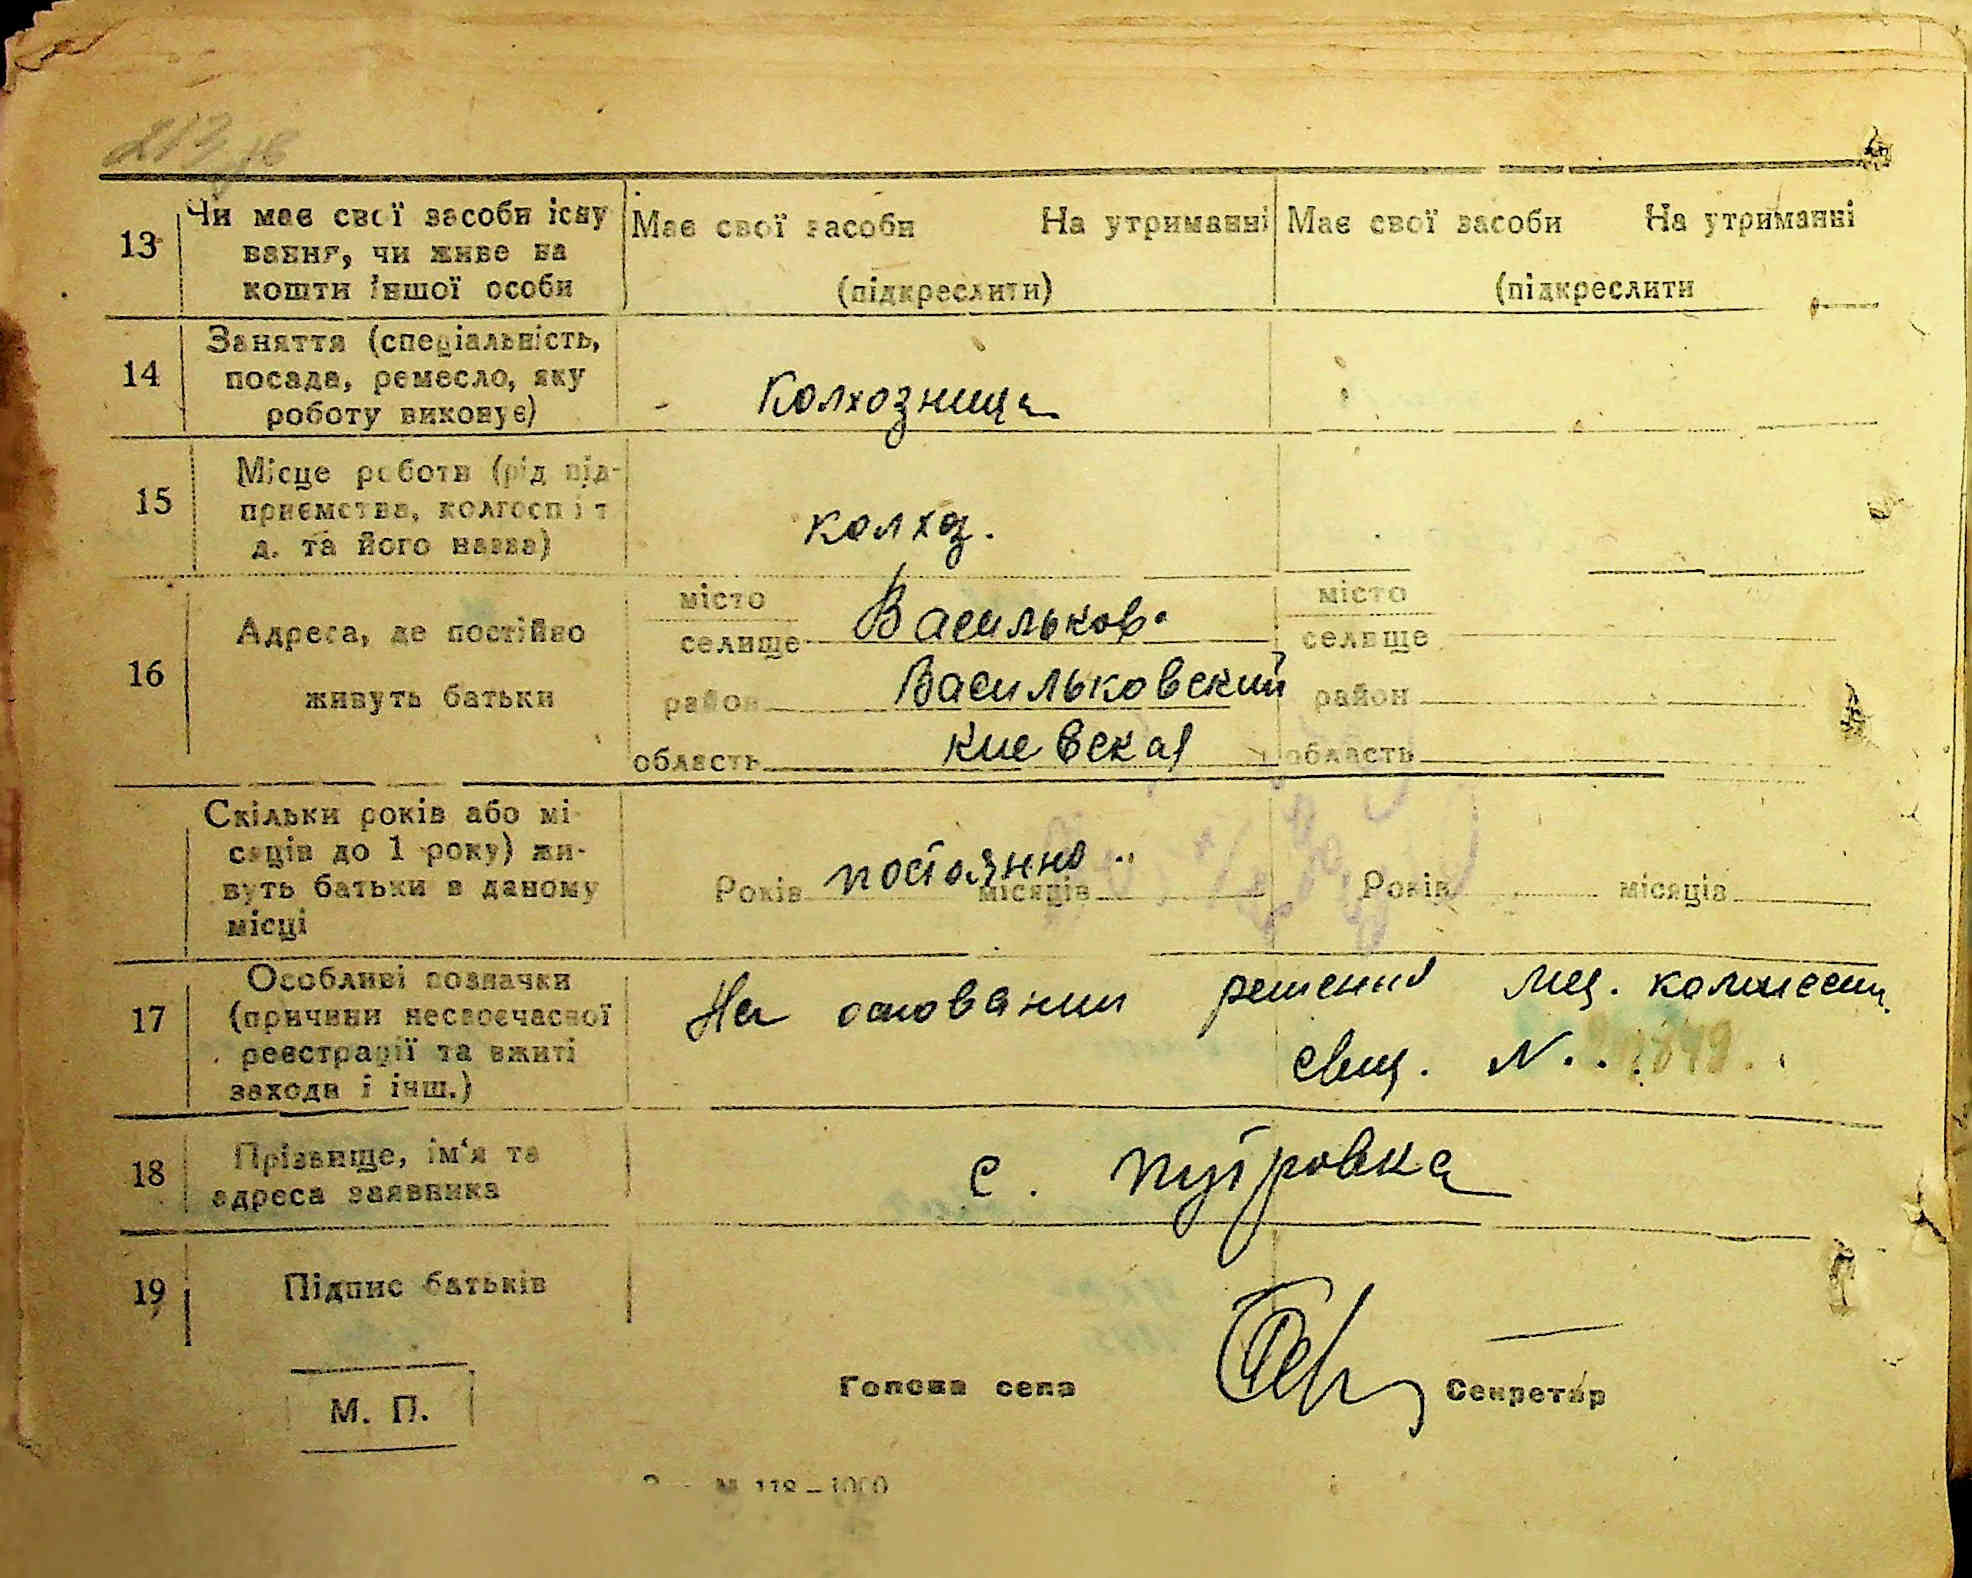 13 Чи має свої засоби існу Має свої засоби На утриманні Має свої засоби На утриманні
вання, чи живе на
кошти іншої особи (підкреслити) (підкреслити
14 Заняття (спеціальність,
посада, ремесло, яку Колхозница
роботу виконує)
15 Місце роботи (рід під-
приємства, колгосп і т колхоз.
д. та його назва)
16 Адреса, де постійно
живуть батьки
місто місто
селище Васильков. селище
район Васильковский район
область Киевская область
Скільки років або мі-
сяців до 1 року) жи-
вуть батьки в даному Років постоянно місяців Років місяців
місці
17 Особливі позначки На основании решения мед. комиссии
(причини несвоєчасної
реєстрації та вжиті свид. N.
заходи і інш.)
18 Прізвище, ім'я та с. Путровка
адреса заявника
19 Підпис батьків
М. П. Голова села Секретар